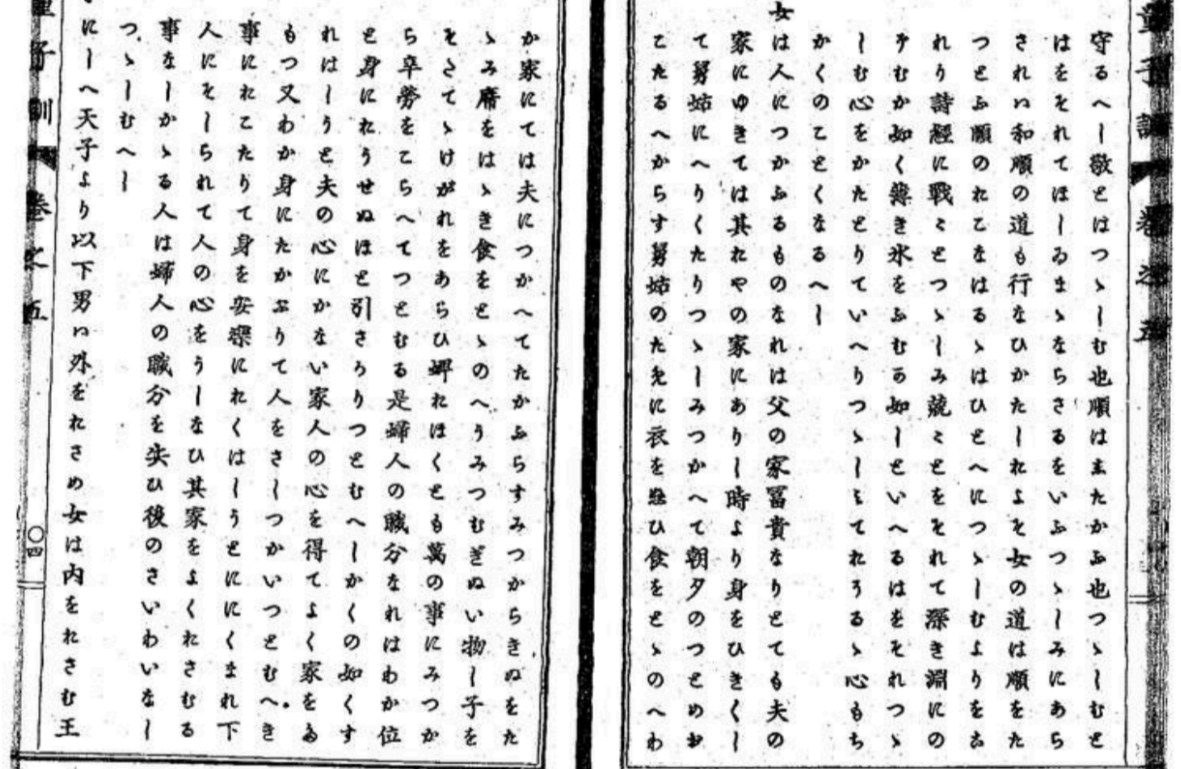 童子訓 卷之五
守るへし敬とはつゝしむ也順はまたかふ也つゝしむと
はをそれてほしゐまゝならさるをいふつゝしみにあら
されハ和順の道も行なひかたしれよそ女の道は順をた
つとふ順のれこなはるゝはひとへにつゝしむよりをこ
れり詩經に戰〻とつゝしみ兢〻とをそれて深き淵にの
そむか如く薄き氷をふむか如しといへるはをそれつゝ
しむ心をかたとりていへりつゝしみてれそるゝ心もち
かくのことくなるへし
女は人につかふるものなれは父の家冨貴なりとても夫の
家にゆきては其れやの家にありし時より身をひきくし
て舅姑にへりくたりつゝしみつかへて朝夕のつとめお
こたるへからす舅姑のために衣を縫ひ食をとゝのへわ
か家にては夫につかへてたかふらすみつからきぬをた
ゝみ席をはゝき食をとゝのへうみつむぎぬい物し子を
そたてゝけがれをあらひ婢れほくとも萬の事にみつか
ら辛勞をこらへてつとむる是婦人の職分なれはわか位
と身にれうせぬほと引さかりつとむへしかくの如くす
れはしうと夫の心にかない家人の心を得てよく家をゐ
もつ又わか身にたかふりて人をさしつかいつとむへき
事にれこたりて身を安樂にれくはしうとににくまれ下
人にそしられて人の心をうしなひ其家をよくれさむる
事なしかゝる人は婦人の職分を失ひ後のさいわいなし
つゝしむへし
にしへ天子より以下男ハ外をれさめ女は内をれさむ王
童子訓 卷之五
〇四